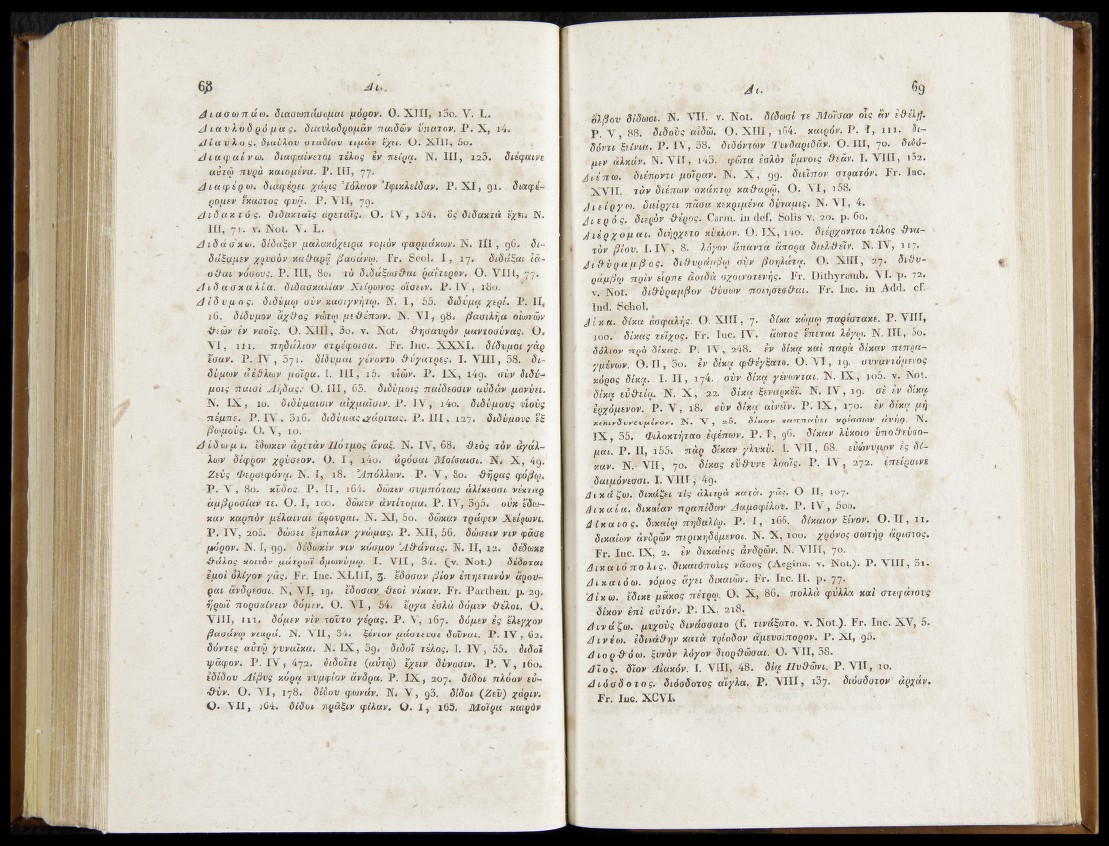 68
Δι.
Διασωπάω. διασωπάσομαι μόρον. O. XIII, 130. V. L.
Διαυλοδρόμας. διαυλοδρομᾶν παιδῶν ὕπατον. P. X, 14.
Δίαυλος. διαύλου σταδίου τιμὰν ἔχει. O. XIII, 50.
Διαφαίνω. διαφαίνεται τέλος ἐν πείρᾳ. N. III, 123. διέφαινε
αὐτῷ πυρὰ καιομένα. P. III, 77.
Διαφέρω. διαφέρει χάρις Ἰόλαον Ἰφικλείδαν. P. XI, 91. διαφέ-
ρομεν ἕκαστος φυῇ. P. VII, 79.
Διδακτός. διδακταῖς ἀρεταῖς. O. IV, 154. ὃς διδακτὰ ἔχει. N.
III, 71. v. Not. V. L.
Διδάσκω. δίδαξεν μαλακόχειρα νομὸν φαρμάκων. N. III, 96. δι-
δάξαμεν χρυσὸν καθαρᾷ βασάνῳ. Fr. Scol. I, 17. διδάξαι ἰᾶ-
σθαι νόσους. P. III, 80. τὸ διδάξασθαι ῥαΐτερον. O. VIII, 77.
Διδασκαλία. διδασκαλίαν Χείρωνος οἴσειν. P. IV, 180.
Δίδυμος. διδύμῳ σὺν κασιγνήτῳ. N. I, 55. διδύμᾳ χερί. P. II,
16. δίδυμον ἄχθος νώτῳ μεθέπων. N. VI, 98. βασιλῆα οἰωνῶν
θεῶν ἐν ναοῖς. O. XIII, 30. v. Not. θησαυρὸν μαντοσύνας. O.
VI, 111. πηδάλιον στρέφοισα. Fr. Inc. XXXI. δίδυμοι γὰρ
ἔσαν. P. IV, 371. δίδυμαι γένοντο θύγατρες. I. VIII, 38. δι-
δύμων ἀέθλων μοῖρα. I. III, 15. υἱῶν. P. IX, 149. σὺν διδύ-
μοις παισὶ Λήδας. O. III, 63. διδύμοις παίδεσσιν αὐδὰν μανύει.
N. IX, 10. διδύμαισιν αἰχμαῖσιν. P. IV, 140. διδύμους υἱοὺς
πέμπε. P. IV, 316. διδύμας χάριτας. P. III, 127. διδύμους ἓξ
βωμούς. O. V, 10.
Δίδωμι. ἔδωκεν ἀρετὰν Πότμος ἄναξ. N. IV, 68. θεὸς τὸν ἀγάλ-
λων δίφρον χρύσεον. O. I, 140. ἀρόσαι Μοίσαισι. N. X, 49.
Ζεὺς Φερσεφόνᾳ. N. I, 18. Ἀπόλλων. P. V, 80. θῆρας φόβῳ.
P. V, 80. κῦδος. P. II, 164. δῶκεν συμπόταις ἁλίκεσσι νέκταρ
ἀμβροσίαν τε. O. I, 100. δῶκεν ἀντίτομα. P. IV, 395. οὐκ ἔδω-
καν καρπὸν μέλαιναι ἄρουραι. N. XI, 50. δῶκαν τράφεν Χείρωνι.
P. IV, 205. δώσει ἔμπαλιν γνώμας. P. XII, 56. δώσειν νιν φᾶσε
μόρον. N. I, 99. δέδωκίν νιν κόσμον Ἀθάναις. N. II, 12. δέδωκε
θάλος κοινὸν μάτρωϊ ὁμωνύμῳ. I. VII, 34. (v. Not.) δίδοται
ἐμοὶ ὀλίγον γᾶς. Fr. Inc. XLIII, 3. ἔδοσαν βίον ἐπηετανὸν ἄρου-
ραι ἄνδρεσσι. N. VI, 19. ἔδοσαν θεοὶ νίκαν. Fr. Parthen. p. 29.
ἥρωϊ πορσαίνειν δόμεν. O. VI, 54. ἔργα ἐσλὰ δόμεν θέλοι. O.
VIII, 111. δόμεν νὶν τοῦτο γέρας. P. V, 167. δόμεν ἐς ἔλεγχον
βασάνῳ νεαρά. N. VII, 34. ξένιον μάστευσε δοῦναι. P. IV, 62.
δόντες αὐτῷ γυναῖκα. N. IX, 39. διδοῖ τέλος. I. IV, 55. διδοῖ
ψᾶφον. P. IV, 472. διδοῖτε (αὐτῷ) ἔχειν δύνασιν. P. V, 160.
ἐδίδου Λίβυς κόρᾳ νυμφίον ἄνδρα. P. IX, 207. δίδοι πλόον εὐ-
θύν. O. VI, 178. δίδου φωνάν. N. V, 93. δίδοι (Ζεῦ) χάριν.
O. VII, 164. δίδοι πρᾶξιν φίλαν. O. I, 163. Μοῖρα καιρὸν
Δι.
69
ὄλβου δίδωσι. N. VII. v. Not. δίδωσί τε Μοῖσαν οἷς ἂν ἐθέλῃ.
P. V, 88. διδοὺς αἰδῶ. O. XIII, 164. καιρόν. P. I, 111. δι-
δόντι ξείνια. P. IV, 38. διδόντων Τυνδαριδᾶν. O. III, 70. διδό-
μεν ἀλκάν. N. VII, 143. φῶτα ἐσλὸν ὕμνοις θεᾶν. I. VIII, 132.
Διέπω. διέποντι μοῖραν. N. X, 99. διεῖπον στρατόν. Fr. Inc.
XVII. τὰν διέπων σκάπτῳ καθαρῷ. O. VI, 158.
Διείργω. διείργει πᾶσα κεκριμένα δύναμις. N. VI, 4.
Διερός. διερὸν θέρος. Carm. in def. Solis v. 20. p. 60.
Διέρχομαι. διήρχετο κύκλον. O. IX, 140. διέρχονται τέλος θνα-
τὸν βίου. I. IV, 8. λόγον ἅπαντα ἄπορα διελθεῖν. N. IV, 117.
Διθύραμβος. διθυράμβῳ σὺν βοηλάτᾳ. O. XIII, 27. διθυ-
ράμβῳ πρὶν εἷρπε ἀοιδὰ σχοινοτενής. Fr. Dithyramb. VI. p. 72.
v. Not. διθύραμβον θύσων ποιήσεσθαι. Fr. Inc. in Add. cf.
Ind. Schol.
Δίκα. δίκα ἀσφαλής. O. XIII, 7. δίκα κώμῳ παρίστακε. P. VIII,
100. δίκας τεῖχος. Fr. Inc. IV. ἄωτος ἕπεται λόγῳ. N. III, 50.
δόλιον πρὸ δίκας. P. IV, 248. ἐν δίκᾳ καὶ παρὰ δίκαν πεπρα-
γμένων. O. II, 30. ἐν δίκᾳ φθέγξατο. O. VI, 19. συναντόμενος
κόρος δίκᾳ. I. II, 174. σὺν δίκᾳ γένωνται. N. IX, 105. v. Not.
δίκᾳ εὐθείᾳ. N. X, 22. δίκᾳ ξεναρκέϊ. N. IV, 19. σὲ ἐν δίκᾳ
ἐρχόμενον. P. V, 18. σὺν δίκᾳ αἰνεῖν. P. IX, 170. ἐν δίκᾳ μὴ
κεκινδυνευμένον. N. V, 25. δίκαν καταπαύει κρέσσων ἀνήρ. N.
IX, 35. Φιλοκτήταο ἐφέπων. P. I, 96. δίκαν λύκοιο ὑποθεύσο-
μαι. P. II, 155. πὰρ δίκαν γλυκύ. I. VII, 68. εὐώνυμον ἐς δί-
καν. N. VII, 70. δίκας εὔθυνε λαοῖς. P. IV, 272. ἐπείραινε
δαιμόνεσσι. I. VIII, 49.
Δικάζω. δικάζει τὶς ἀλιτρὰ κατὰ. γᾶς. O II, 107.
Δικαία. δικαίαν πραπίδων Δαμοφίλου. P. IV, 500.
Δίκαιος. δικαίῳ πηδαλίῳ. P. I, 166. δίκαιον ξένον. O. II, 11.
δικαίων ἀνδρῶν περικηδόμενοι. N. X, 100. χρόνος σωτὴρ ἄριστος.
Fr. Inc. IX, 2. ἐν δικαίοις ἀνδρῶν. N. VIII, 70.
Δικαιόπολις. δικαιόπολις νᾶσος (Aegina. v. Not.). P. VIII, 31.
Δικαιόω. νόμος ἄγει δικαιῶν. Fr. Inc. II. p. 77.
Δίκω. ἔδικε μᾶκος πέτρῳ. O. X, 86. πολλὰ φύλλα καὶ στεφάνους
δίκον ἐπὶ αὐτόν. P. IX, 218.
Δινάζω. μυχοὺς δινάσσατο (f. τινάξατο. v. Not.). Fr. Inc. XV, 5.
Δινέω. ἐδινάθην κατὰ τρίοδον ἀμευσίπορον. P. XI, 95.
Διορθόω. ξυνὸν λόγον διορθῶσαι. O. VII, 38.
Δῖος. δῖον Αἰακόν. I. VIII, 48. δίᾳ Πυθῶνι. P. VII, 10.
Διόσδοτος. διόσδοτος αἴγλα. P. VIII, 137. διόσδοτον ἀρχάν.
Fr. Inc. XCVI.